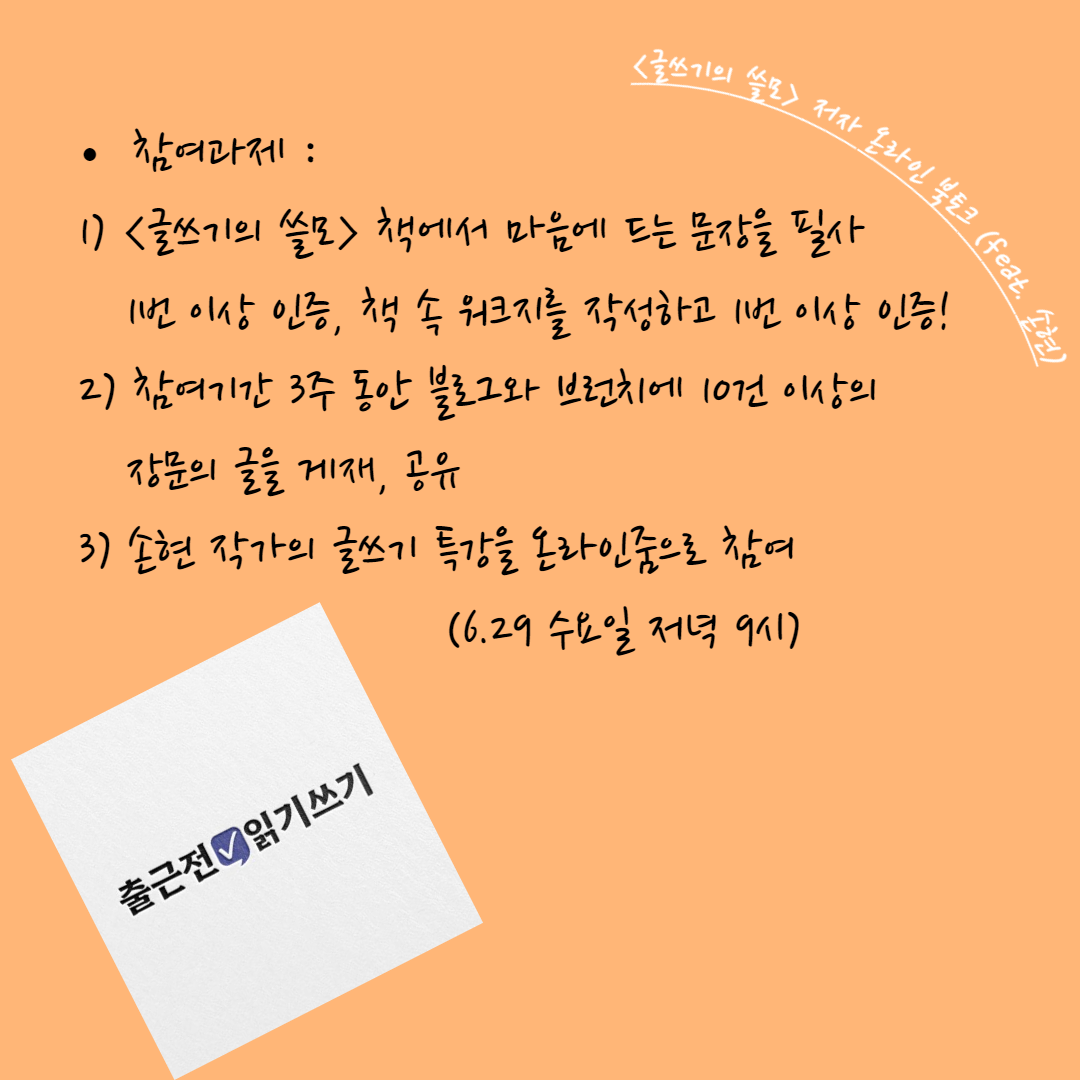 <글쓰기의 쓸모> 저자 온라인 북토크 (feat. 손현)
• 참여과제 :
1) <글쓰기의 쓸모> 책에서 마음에 드는 문장을 필사
1번 이상 인증, 책 속 워크지를 작성하고 1번 이상 인증!
2) 참여기간 3주 동안 블로그와 브런치에 10건 이상의
장문의 글을 게재, 공유
3) 손현 작가의 글쓰기 특강을 온라인줌으로 참여
(6.29 수요일 저녁 9시)
출근전 읽기쓰기